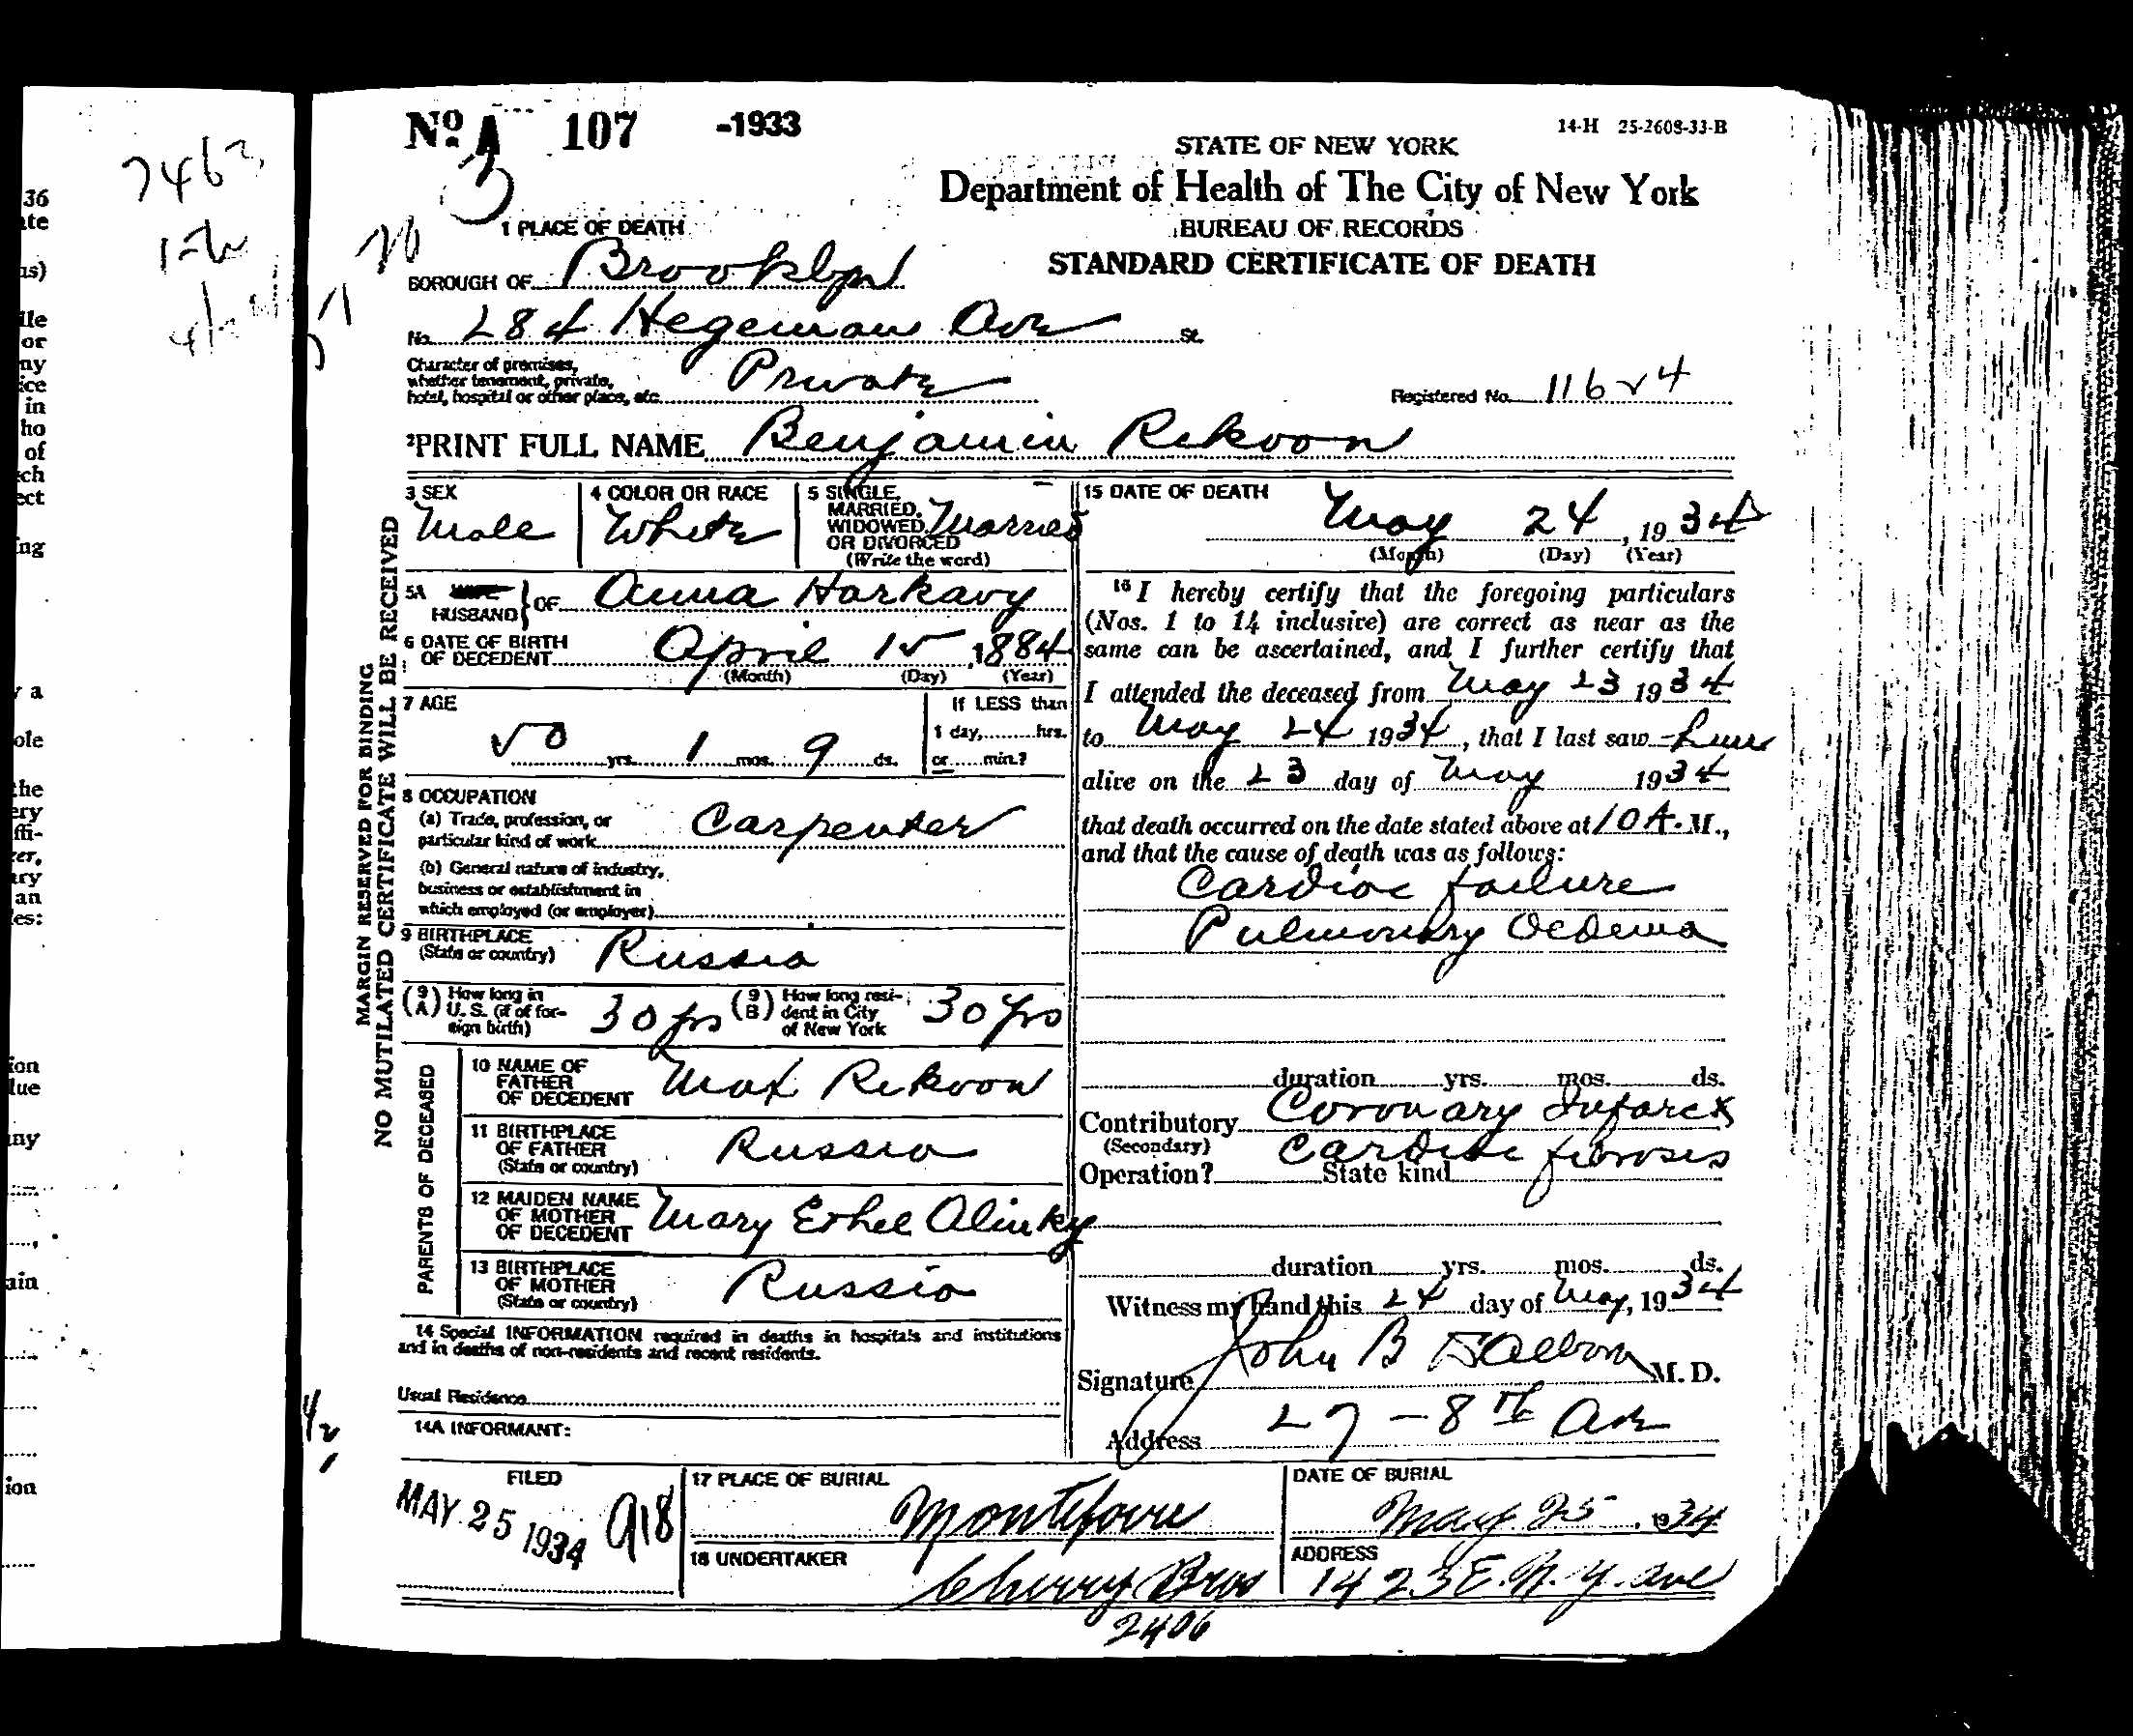 36
ate
as)
lle
or
ny
ice
in
ho
of
ch
ect
ing
y a
ole
the
ery
ffi-
zer,
ary
an
les:
ion
lue
any
ain
ion
7463
No A 107 -1933
3
14-H 25-2608-33-B
STATE OF NEW YORK
Department of Health of The City of New York
BUREAU OF RECORDS
STANDARD CERTIFICATE OF DEATH
1 PLACE OF DEATH
BOROUGH OF Brooklyn
No. 284 Hegeman Ave St.
Character of premises,
whether tenement, private,
hotel, hospital or other place, etc. Private
Registered No. 11624
2 PRINT FULL NAME Benjamin Rekoon
MARGIN RESERVED FOR BINDING
NO MUTILATED CERTIFICATE WILL BE RECEIVED
3 SEX
Male
4 COLOR OR RACE
White
5 SINGLE,
MARRIED,
WIDOWED,
OR DIVORCED
(Write the word)
Married
5A WIFE
HUSBAND } OF Anna Harkavy
6 DATE OF BIRTH
OF DECEDENT April 15, 1884
(Month) (Day) (Year)
7 AGE
50 yrs. 1 mos. 9 ds.
If LESS than
1 day, hrs.
or min.?
8 OCCUPATION
(a) Trade, profession, or
particular kind of work Carpenter
(b) General nature of industry,
business or establishment in
which employed (or employer)
9 BIRTHPLACE
(State or country) Russia
(9 A) How long in
U. S. (if of for-
eign birth) 30 yrs
(9 B) How long resi-
dent in City
of New York 30 yrs
PARENTS OF DECEASED
10 NAME OF
FATHER
OF DECEDENT Max Rekoon
11 BIRTHPLACE
OF FATHER
(State or country) Russia
12 MAIDEN NAME
OF MOTHER
OF DECEDENT Mary Ethel Olinky
13 BIRTHPLACE
OF MOTHER
(State or country) Russia
14 Special INFORMATION required in deaths in hospitals and institutions
and in deaths of non-residents and recent residents.
Usual Residence
14A INFORMANT:
15 DATE OF DEATH
May 24, 1934
(Month) (Day) (Year)
16 I hereby certify that the foregoing particulars
(Nos. 1 to 14 inclusive) are correct as near as the
same can be ascertained, and I further certify that
I attended the deceased from May 23 1934
to May 24 1934, that I last saw him
alive on the 23 day of May 1934
that death occurred on the date stated above at 10 A. M.,
and that the cause of death was as follows:
Cardiac failure
Pulmonary Oedema
duration yrs. mos. ds.
Contributory Coronary Infarct
(Secondary) Cardiac fibrosis
Operation? State kind
duration yrs. mos. ds.
Witness my hand this 24 day of May, 1934
Signature John B M. D.
Address 27 - 8th Ave
FILED
MAY 25 1934
918
17 PLACE OF BURIAL
Montefiore
DATE OF BURIAL
May 25, 1934
18 UNDERTAKER
Cherry Bros
ADDRESS
1423 E. N. Y. Ave
2406